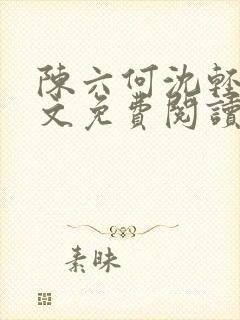 陳六何沈輕
文免費閱讀
素昧